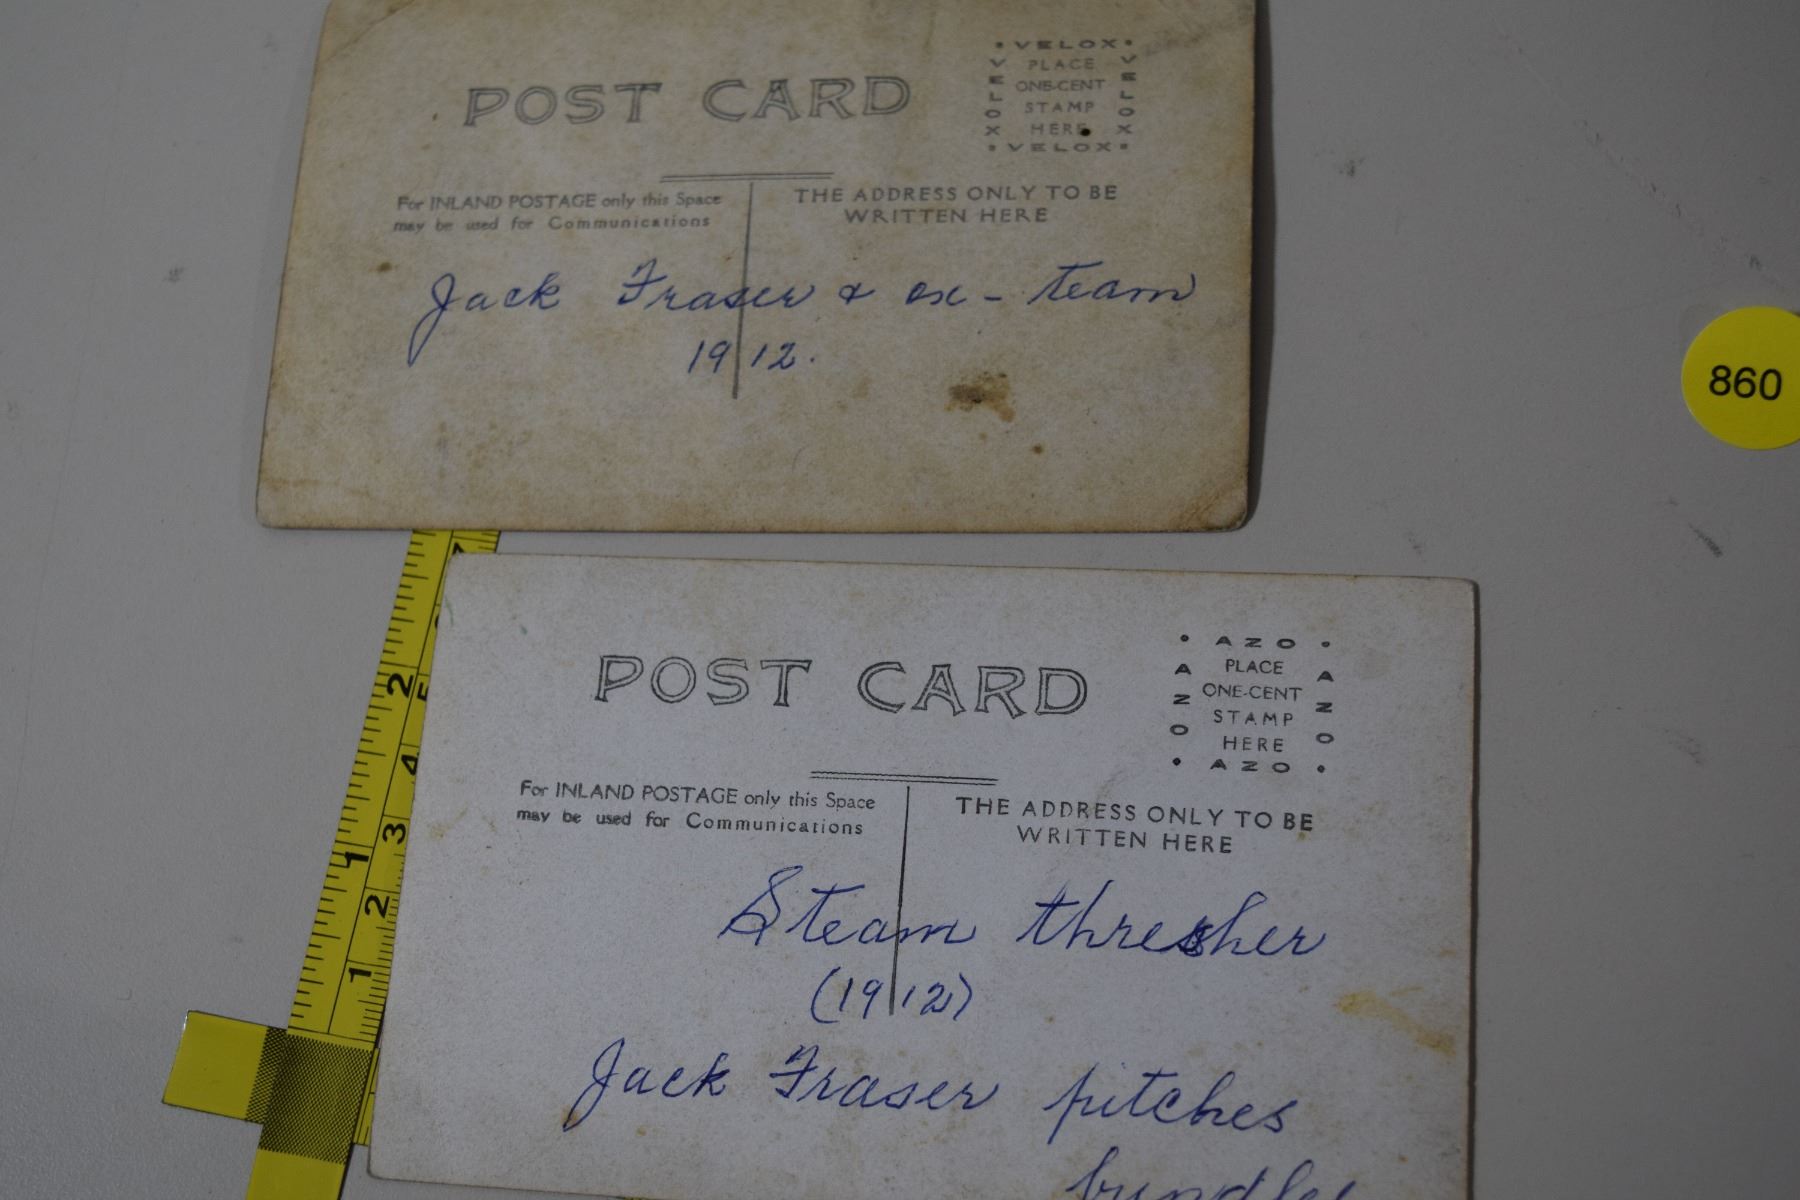 POST CARD
• VELOX •
VELOX
PLACE
ONE-CENT
STAMP
HERE
VELOX
• VELOX •
For INLAND POSTAGE only this Space
may be used for Communications
THE ADDRESS ONLY TO BE
WRITTEN HERE
Jack Fraser & ox-team
1912.
860
POST CARD
• AZO •
AZO
PLACE
ONE-CENT
STAMP
HERE
AZO
• AZO •
For INLAND POSTAGE only this Space
may be used for Communications
THE ADDRESS ONLY TO BE
WRITTEN HERE
Steam thresher
(1912)
Jack Fraser pitches
2
1
4
3
2
1